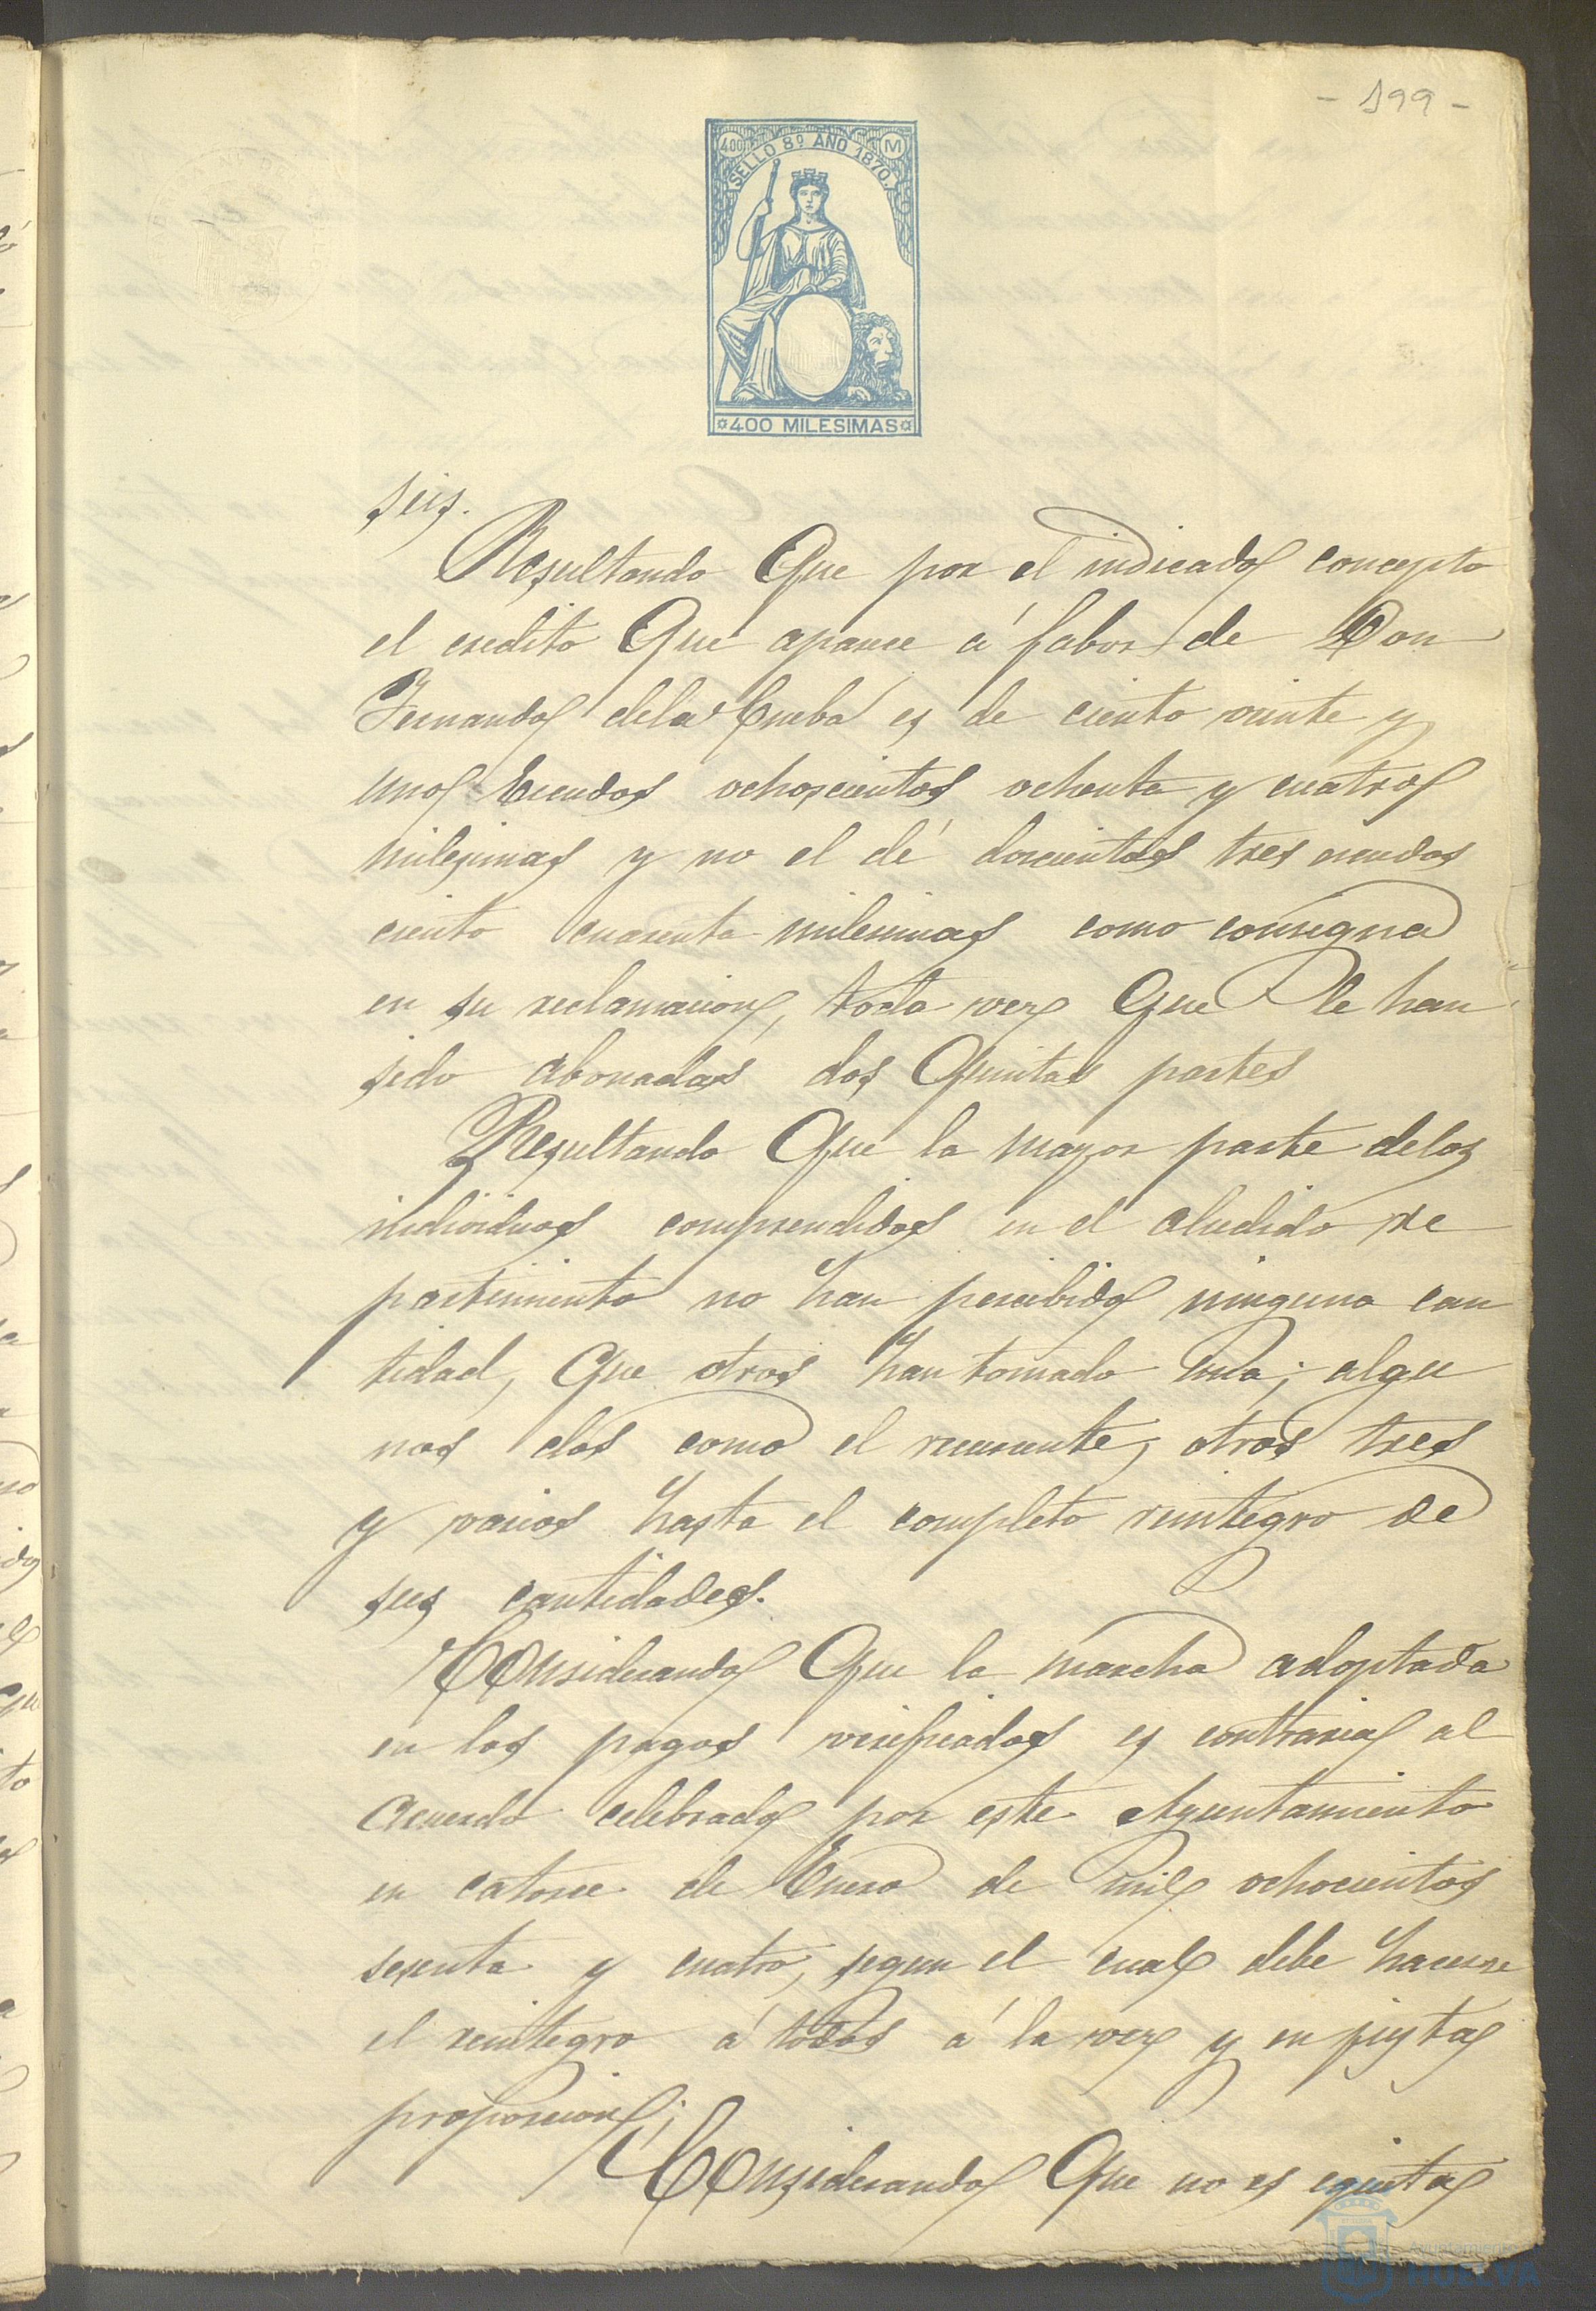 - 199 -
400 M
SELLO 8º AÑO 1870.
400 MILESIMAS
seis.
Resultando Que por el indicado concepto
el credito Que aparece á fabor de Don
Fernando dela Cueba es de ciento veinte y
uno Escudos ochoscientos ochenta y cuatro
milesimas y no el dé doscientos tres escudos
ciento cuarenta milesimas como consigna
en su reclamacion, toda vez Que le han
sido abonadas dos Quintas partes
Resultando Que la mayor parte delos
individuos comprendidos en el aludido re
partimiento no han percibido ninguna can
tidad, Que otros han tomado una; algu
nos dos como el recurrente; otros tres
y varios hasta el completo reintegro de
sus cantidades.
Considerando Que la marcha adoptada
en los pagos verificados es contraria al
acuerdo celebrado por este Ayuntamiento
en catorce de Enero de mil ochocientos
sesenta y cuatro, segun el cual debe hacerse
el reintegro á todos á la vez y en justa
proporcion;
Considerando Que no es equita
Ayuntamiento
HUELVA